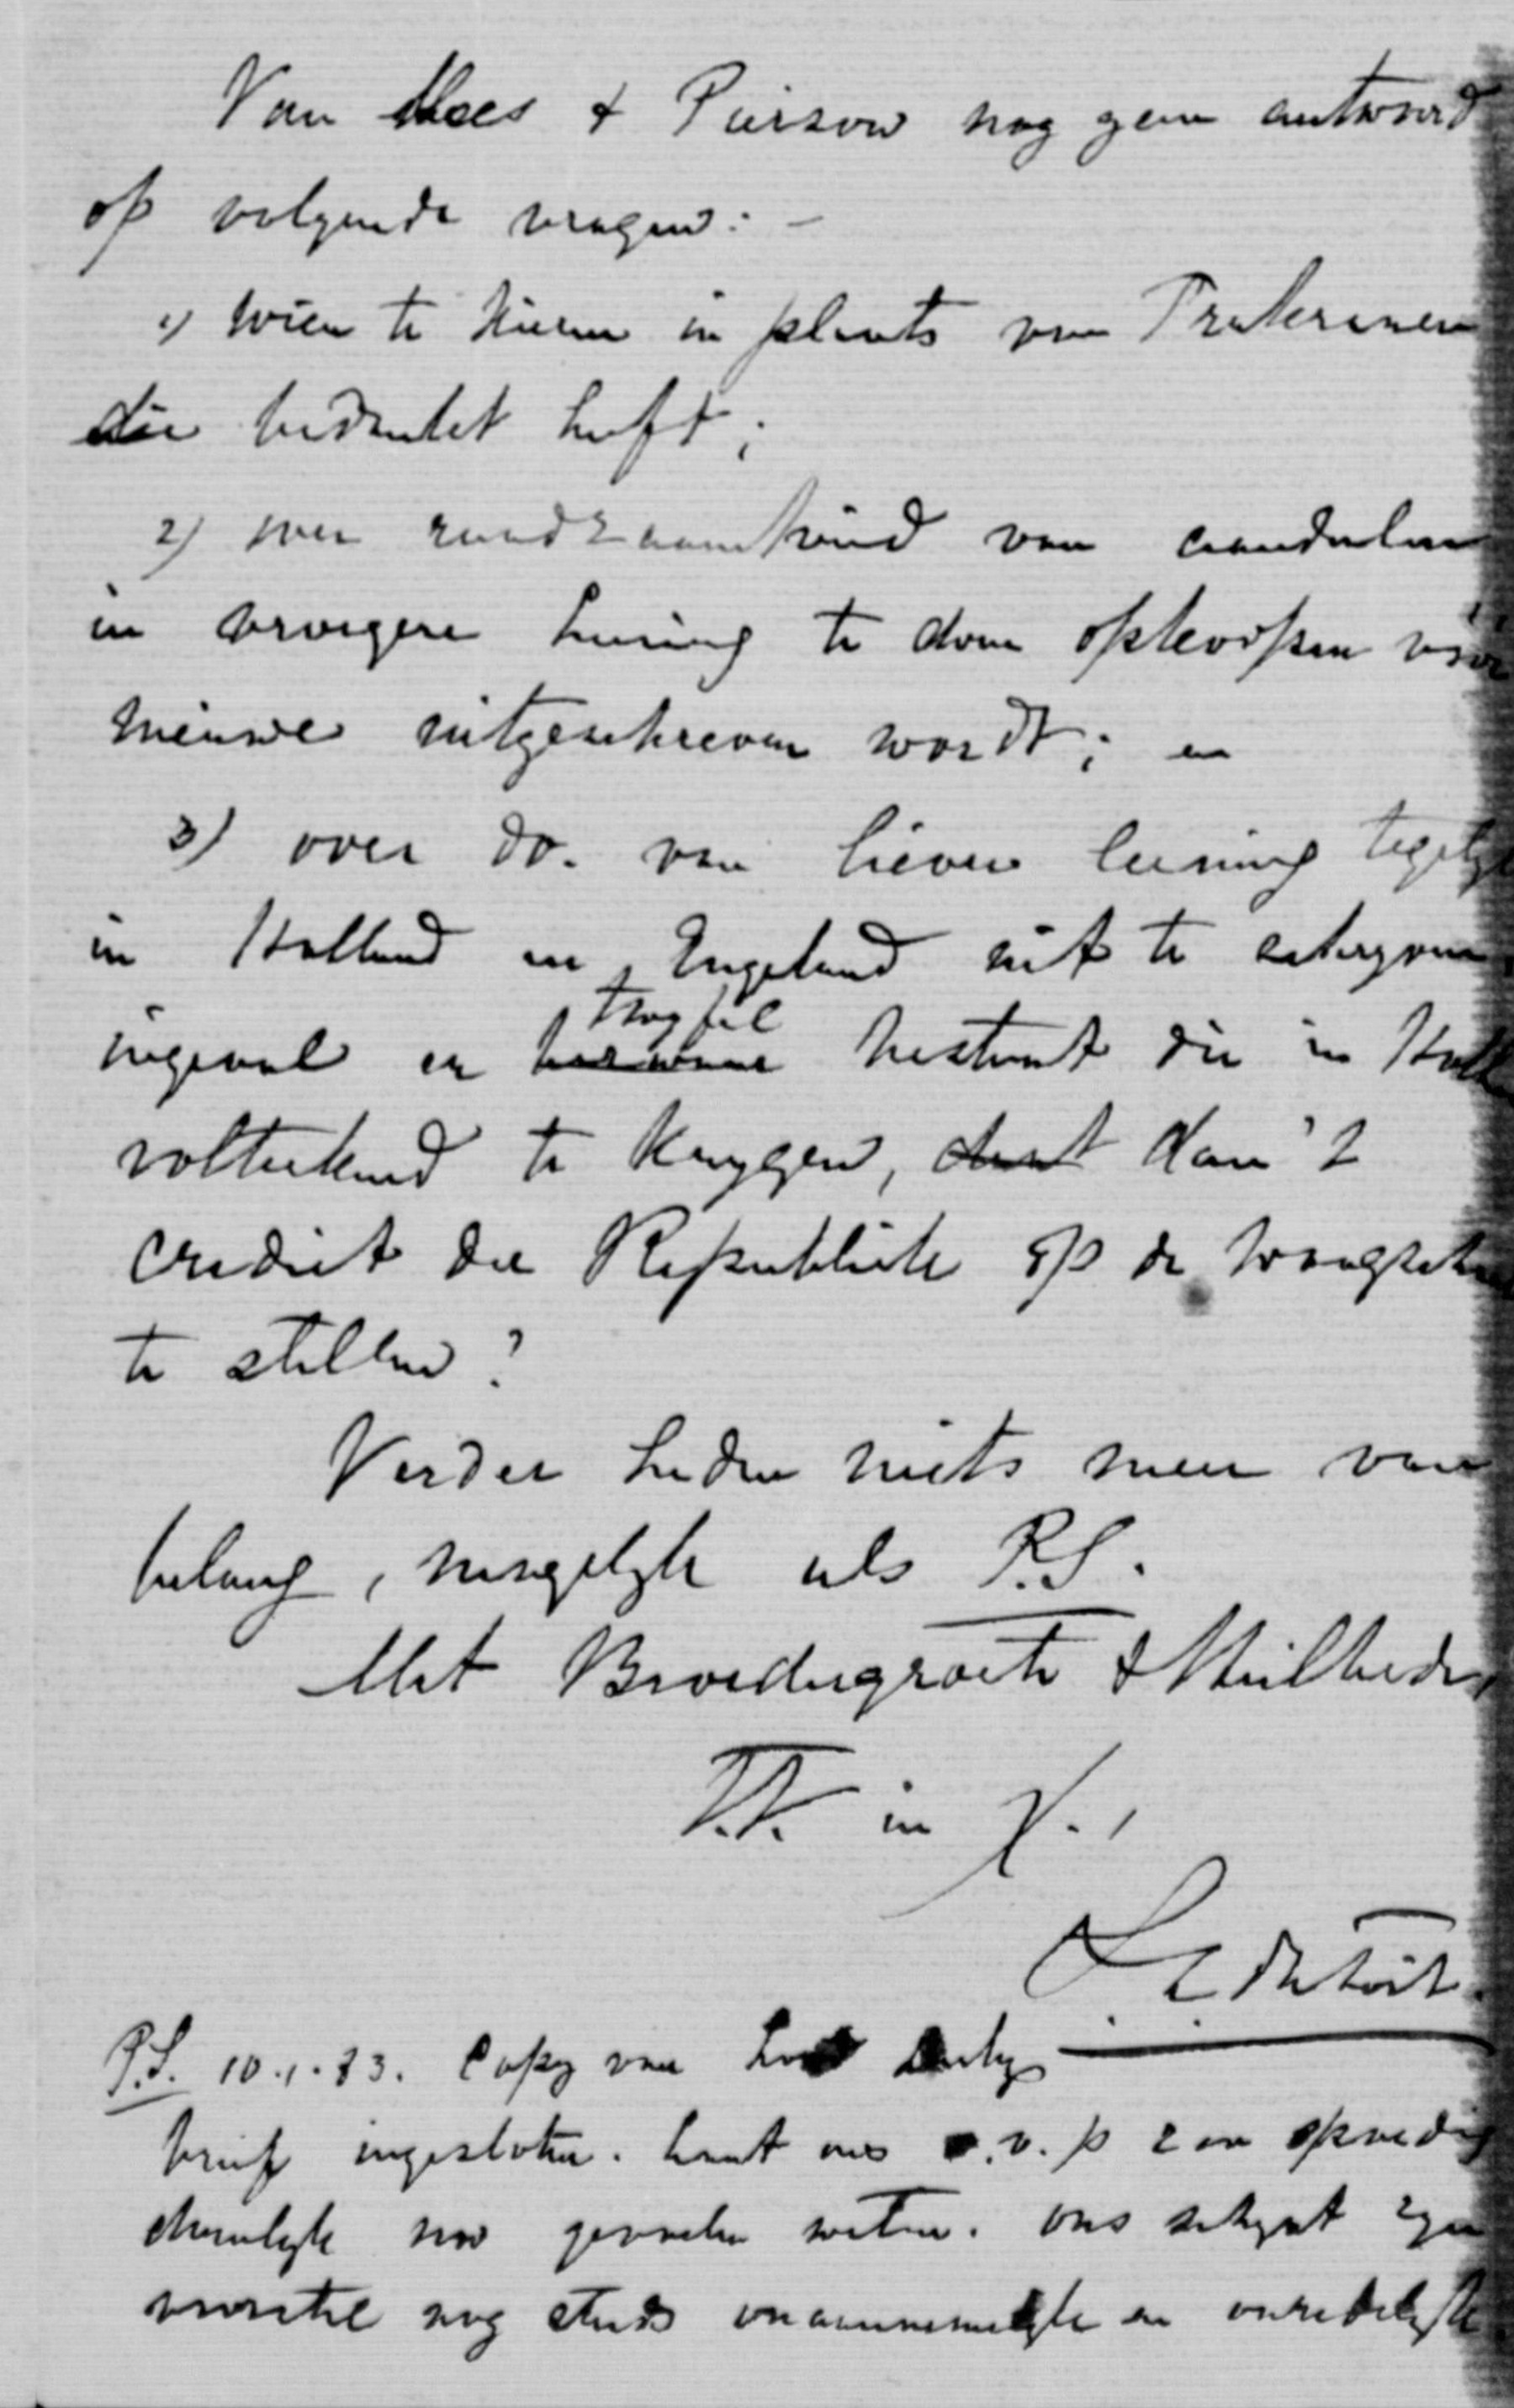 Van Mees & Pierson nog geen antwoord
op volgende vragen: -
1) wien te kiezen in plaats van
die bedankt heeft;
2) over raadzaamheid van aandeelen
in vroegere leening te doen opkoopen vóór
nieuwe uitgeschreven wordt; en
3) over do. van liever leening
in Holland en Engeland uit te schryven
ingeval er twyfel bestaat die in
volteekend te krygen, dan 't
crediet der Republiek op de
te stellen?
Verder heden niets meer van
belang, mogelyk als P.S.
Met Broedergroete & Heilbede,
T.T. in X.,
P.S. 10.1.83. Copy van Lord Derby
brief ingesloten. Laat ons s.v.p zoo spoedig
doenlyk uw gevoelen weten. Ons schynt zyn
voorstel nog steeds onaannemelyk en onredelyk